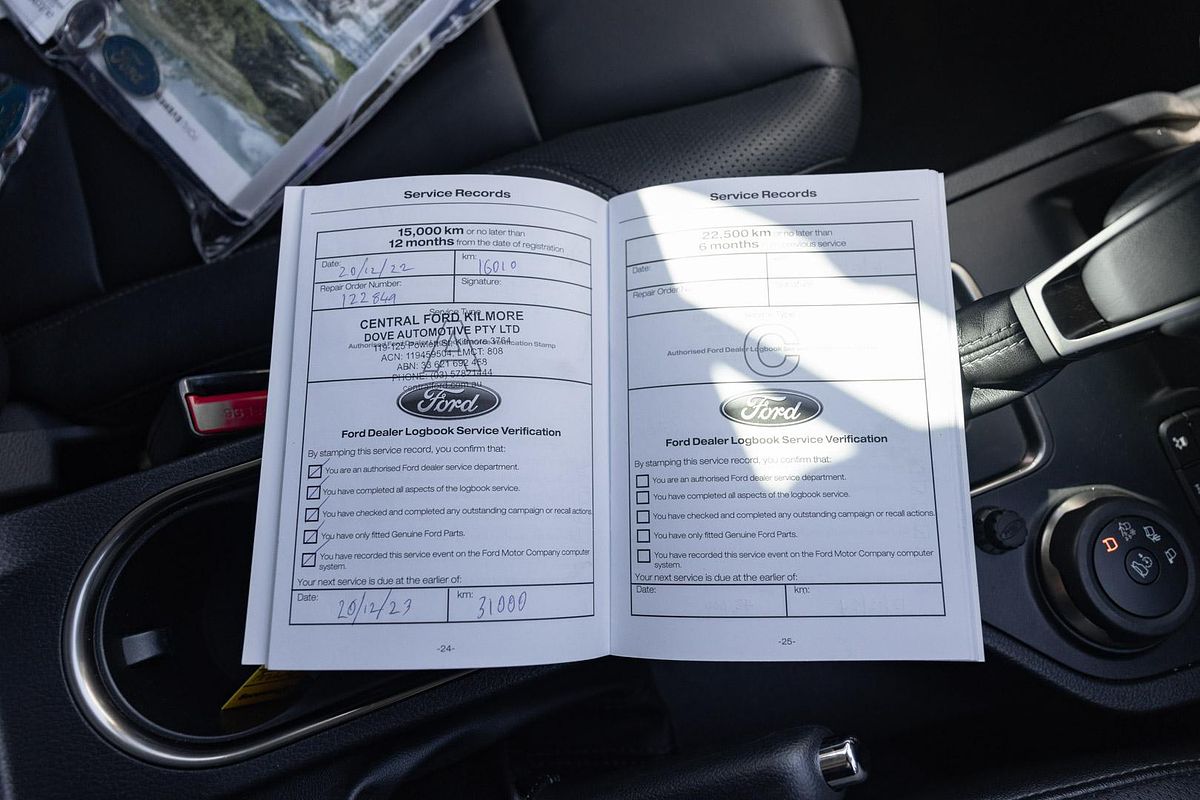 Ford
Service Records
15,000 km or no later than
12 months from the date of registration
Date: 20/12/22
km: 16010
Repair Order Number: 122849
Signature:
Service Type
A
CENTRAL FORD KILMORE
DOVE AUTOMOTIVE PTY LTD
Authorised Ford Dealer Logbook Service Verification Stamp
119-125 Powlett St. Kilmore 3764
ACN: 119459504, LMCT: 808
ABN: 33 621 692 458
PHONE: (03) 57821444
centralford.com.au
Ford
Ford Dealer Logbook Service Verification
By stamping this service record, you confirm that:
You are an authorised Ford dealer service department.
You have completed all aspects of the logbook service.
You have checked and completed any outstanding campaign or recall actions.
You have only fitted Genuine Ford Parts.
You have recorded this service event on the Ford Motor Company computer
system.
Your next service is due at the earlier of:
Date: 20/12/23
km: 31000
-24-
Service Records
22,500 km or no later than
6 months from previous service
Date:
Repair Order
Signature:
Service Type
C
Authorised Ford Dealer Logbook
Ford
Ford Dealer Logbook Service Verification
By stamping this service record, you confirm that:
You are an authorised Ford dealer service department.
You have completed all aspects of the logbook service.
You have checked and completed any outstanding campaign or recall actions.
You have only fitted Genuine Ford Parts.
You have recorded this service event on the Ford Motor Company computer
system.
Your next service is due at the earlier of:
Date:
km:
-25-